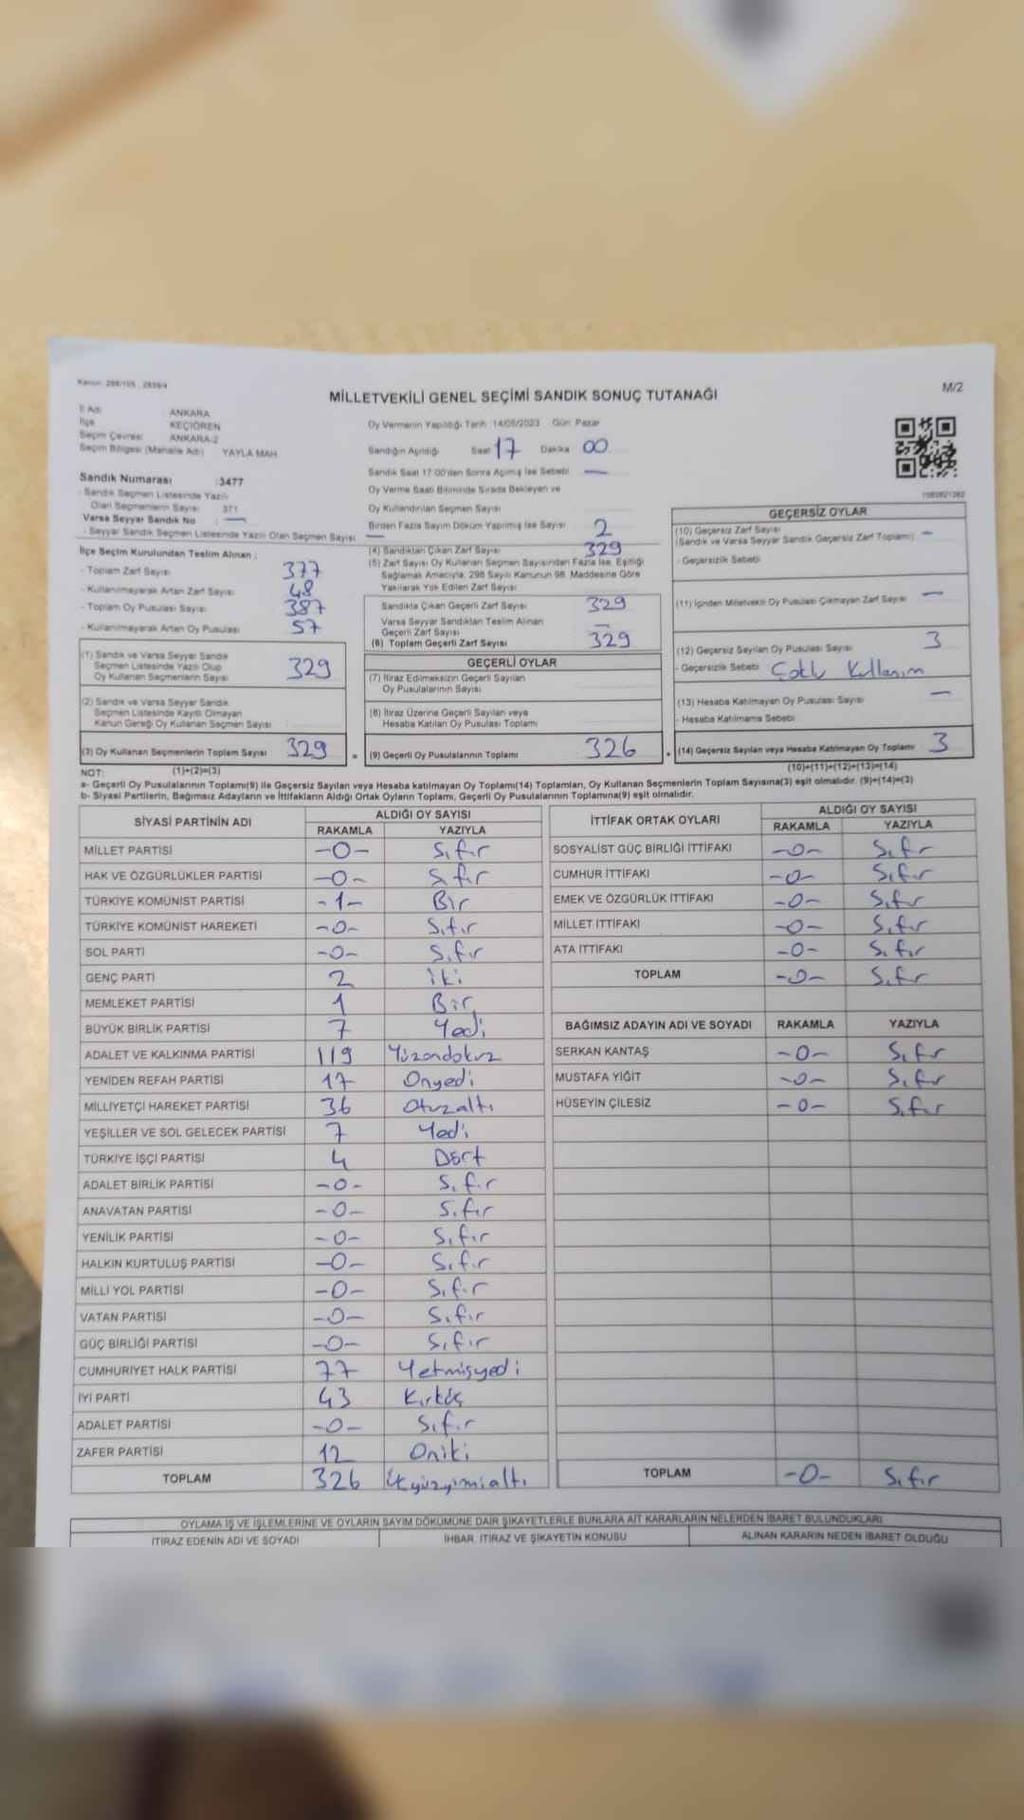 Kanun: 298/105 , 2839/4
M/2
MİLLETVEKİLİ GENEL SEÇİMİ SANDIK SONUÇ TUTANAĞI
İl Adı: ANKARA
İlçe KEÇİÖREN
Seçim Çevresi: ANKARA-2
Seçim Bölgesi (Mahalle Adı) YAYLA MAH
Sandık Numarası :3477
- Sandık Seçmen Listesinde Yazılı
Olan Seçmenlerin Sayısı 371
Varsa Seyyar Sandık No —
- Seyyar Sandık Seçmen Listesinde Yazılı Olan Seçmen Sayısı —
İlçe Seçim Kurulundan Teslim Alınan :
- Toplam Zarf Sayısı 377
- Kullanılmayarak Artan Zarf Sayısı 48
- Toplam Oy Pusulası Sayısı 387
- Kullanılmayarak Artan Oy Pusulası 57
(1) Sandık ve Varsa Seyyar Sandık
Seçmen Listesinde Yazılı Olup
Oy Kullanan Seçmenlerin Sayısı 329
(2) Sandık ve Varsa Seyyar Sandık
Seçmen Listesinde Kayıtlı Olmayan
Kanun Gereği Oy Kullanan Seçmen Sayısı
(3) Oy Kullanan Seçmenlerin Toplam Sayısı 329
Oy Vermenin Yapıldığı Tarih: 14/05/2023 Gün: Pazar
Sandığın Açıldığı Saat 17 Dakika 00
Sandık Saat 17:00'den Sonra Açılmış İse Sebebi —
Oy Verme Saati Bitiminde Sırada Bekleyen ve
Oy Kullandırılan Seçmen Sayısı
Birden Fazla Sayım Döküm Yapılmış İse Sayısı 2
(4) Sandıktan Çıkan Zarf Sayısı 329
(5) Zarf Sayısı Oy Kullanan Seçmen Sayısından Fazla İse, Eşitliği
Sağlamak Amacıyla, 298 Sayılı Kanunun 98. Maddesine Göre
Yakılarak Yok Edilen Zarf Sayısı
Sandıkta Çıkan Geçerli Zarf Sayısı 329
Varsa Seyyar Sandıktan Teslim Alınan
Geçerli Zarf Sayısı —
(6) Toplam Geçerli Zarf Sayısı 329
GEÇERLİ OYLAR
(7) İtiraz Edilmeksizin Geçerli Sayılan
Oy Pusulalarının Sayısı
(8) İtiraz Üzerine Geçerli Sayılan veya
Hesaba Katılan Oy Pusulası Toplamı
(9) Geçerli Oy Pusulalarının Toplamı 326
GEÇERSİZ OYLAR
(10) Geçersiz Zarf Sayısı
(Sandık ve Varsa Seyyar Sandık Geçersiz Zarf Toplamı) —
- Geçersizlik Sebebi
(11) İçinden Milletvekili Oy Pusulası Çıkmayan Zarf Sayısı —
(12) Geçersiz Sayılan Oy Pusulası Sayısı 3
- Geçersizlik Sebebi Çoklu Kullanım
(13) Hesaba Katılmayan Oy Pusulası Sayısı —
- Hesaba Katılmama Sebebi
(14) Geçersiz Sayılan veya Hesaba Katılmayan Oy Toplamı 3
NOT: (1)+(2)=(3) (10)+(11)+(12)+(13)=(14)
a- Geçerli Oy Pusulalarının Toplamı(9) ile Geçersiz Sayılan veya Hesaba katılmayan Oy Toplamı(14) Toplamları, Oy Kullanan Seçmenlerin Toplam Sayısına(3) eşit olmalıdır. (9)+(14)=(3)
b- Siyasi Partilerin, Bağımsız Adayların ve İttifakların Aldığı Ortak Oyların Toplamı, Geçerli Oy Pusulalarının Toplamına(9) eşit olmalıdır.
SİYASİ PARTİNİN ADI ALDIĞI OY SAYISI
RAKAMLA YAZIYLA
MİLLET PARTİSİ -0- Sıfır
HAK VE ÖZGÜRLÜKLER PARTİSİ -0- Sıfır
TÜRKİYE KOMÜNİST PARTİSİ -1- Bir
TÜRKİYE KOMÜNİST HAREKETİ -0- Sıfır
SOL PARTİ -0- Sıfır
GENÇ PARTİ 2 iki
MEMLEKET PARTİSİ 1 Bir
BÜYÜK BİRLİK PARTİSİ 7 Yedi
ADALET VE KALKINMA PARTİSİ 119 Yüzondokuz
YENİDEN REFAH PARTİSİ 17 Onyedi
MİLLİYETÇİ HAREKET PARTİSİ 36 Otuzaltı
YEŞİLLER VE SOL GELECEK PARTİSİ 7 Yedi
TÜRKİYE İŞÇİ PARTİSİ 4 Dört
ADALET BİRLİK PARTİSİ -0- Sıfır
ANAVATAN PARTİSİ -0- Sıfır
YENİLİK PARTİSİ -0- Sıfır
HALKIN KURTULUŞ PARTİSİ -0- Sıfır
MİLLİ YOL PARTİSİ -0- Sıfır
VATAN PARTİSİ -0- Sıfır
GÜÇ BİRLİĞİ PARTİSİ -0- Sıfır
CUMHURİYET HALK PARTİSİ 77 Yetmişyedi
İYİ PARTİ 43 Kırküç
ADALET PARTİSİ -0- Sıfır
ZAFER PARTİSİ 12 Oniki
TOPLAM 326
İTTİFAK ORTAK OYLARI ALDIĞI OY SAYISI
RAKAMLA YAZIYLA
SOSYALİST GÜÇ BİRLİĞİ İTTİFAKI -0- Sıfır
CUMHUR İTTİFAKI -0- Sıfır
EMEK VE ÖZGÜRLÜK İTTİFAKI -0- Sıfır
MİLLET İTTİFAKI -0- Sıfır
ATA İTTİFAKI -0- Sıfır
TOPLAM -0- Sıfır
BAĞIMSIZ ADAYIN ADI VE SOYADI RAKAMLA YAZIYLA
SERKAN KANTAŞ -0- Sıfır
MUSTAFA YİĞİT -0- Sıfır
HÜSEYİN ÇİLESİZ -0- Sıfır
TOPLAM -0- Sıfır
OYLAMA İŞ VE İŞLEMLERİNE VE OYLARIN SAYIM DÖKÜMÜNE DAİR ŞİKAYETLERLE BUNLARA AİT KARARLARIN NELERDEN İBARET BULUNDUKLARI
İTİRAZ EDENİN ADI VE SOYADI İHBAR, İTİRAZ VE ŞİKAYETİN KONUSU ALINAN KARARIN NEDEN İBARET OLDUĞU